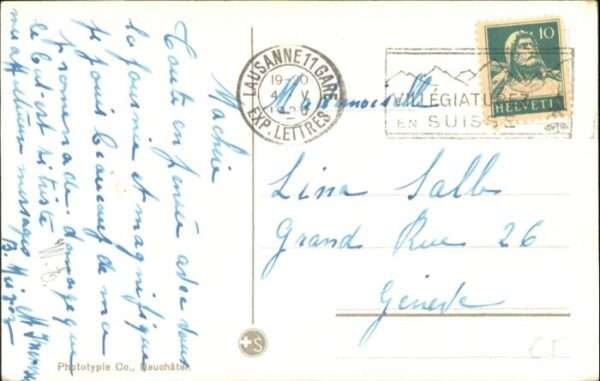 Toute en pensée avec vous
La journée est magnifique
je jouis beaucoup de ma
promenade dommage que
le but est si triste
messages
LAUSANNE 11 GARE
19-20
EXP. LETTRES
VILLÉGIATURE
EN SUISSE
10
HELVETIA
Mademoiselle
Lina Salb
Grand Rue 26
Genève
S
Phototypie Co., Neuchâtel